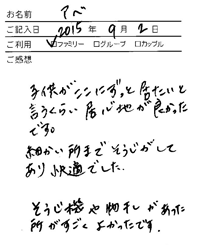 お名前 アベ
ご記入日 2015年9月2日
ご利用 ☑ファミリー □グループ □カップル
ご感想
子供がここにずっと居たいと
言うくらい居心地が良かった
です。
細かい所までそうじがして
あり快適でした。
そうじ機や物干しがあった
所がすごくよかったです。